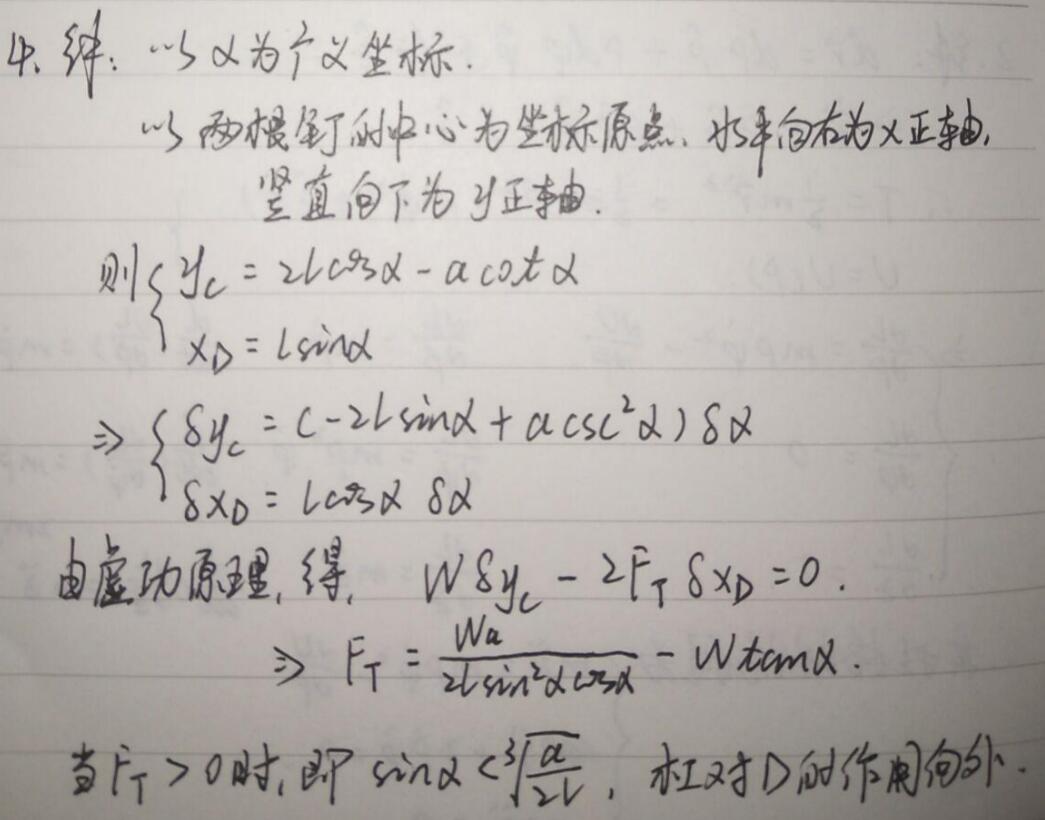 4. 解: 以α为广义坐标.
以两根钉的中心为坐标原点、水平向右为x正轴,
竖直向下为y正轴.
则{ y_C = 2lcosα - a cotα
x_D = lsinα
⇒ { δy_C = (-2lsinα + a csc²α) δα
δx_D = lcosα δα
由虚功原理, 得, Wδy_C - 2F_T δx_D = 0.
⇒ F_T = Wa/(2lsin²αcosα) - Wtanα.
当F_T > 0时, 即 sinα < ∛(a/2l), 杠对D的作用向外.